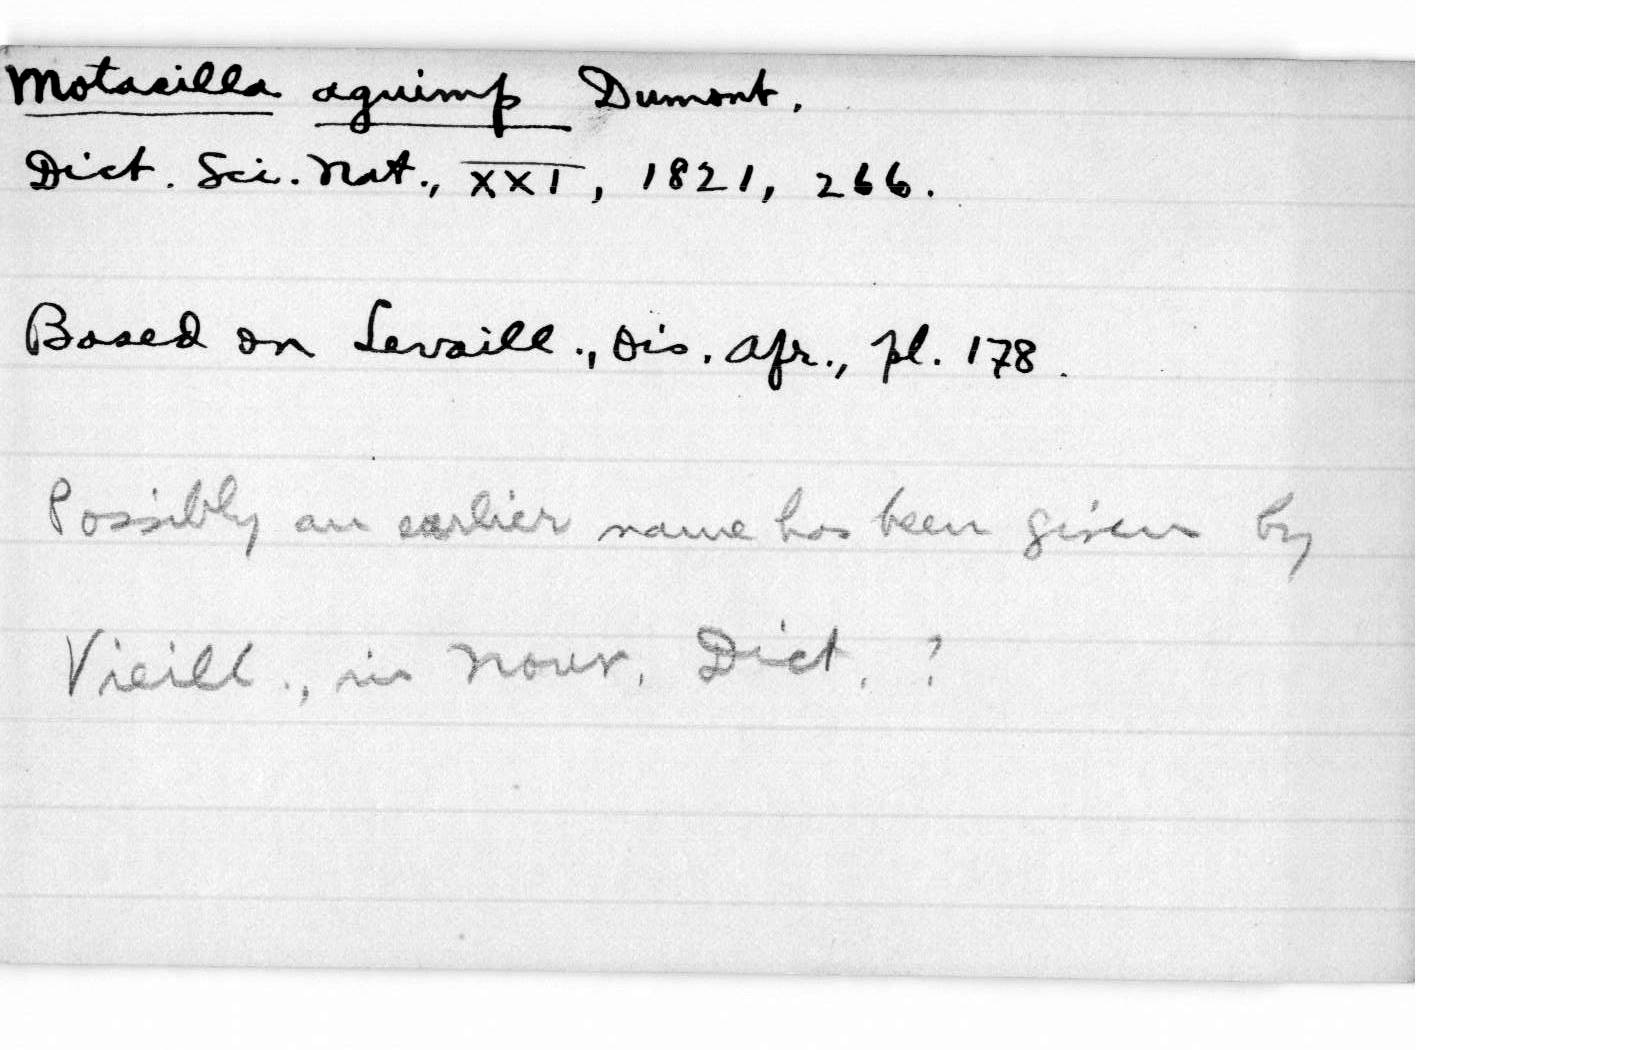 Motacilla aguimp Dumont.
Dict. Sci. Nat., XXI, 1821, 266.
Based on Levaill., Ois. Afr., pl. 178.
Possibly an earlier name has been given by
Vieill., in Nouv. Dict. ?